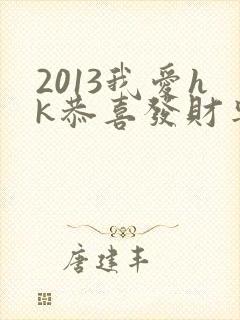 2013我爱h
k恭喜發財
唐建丰